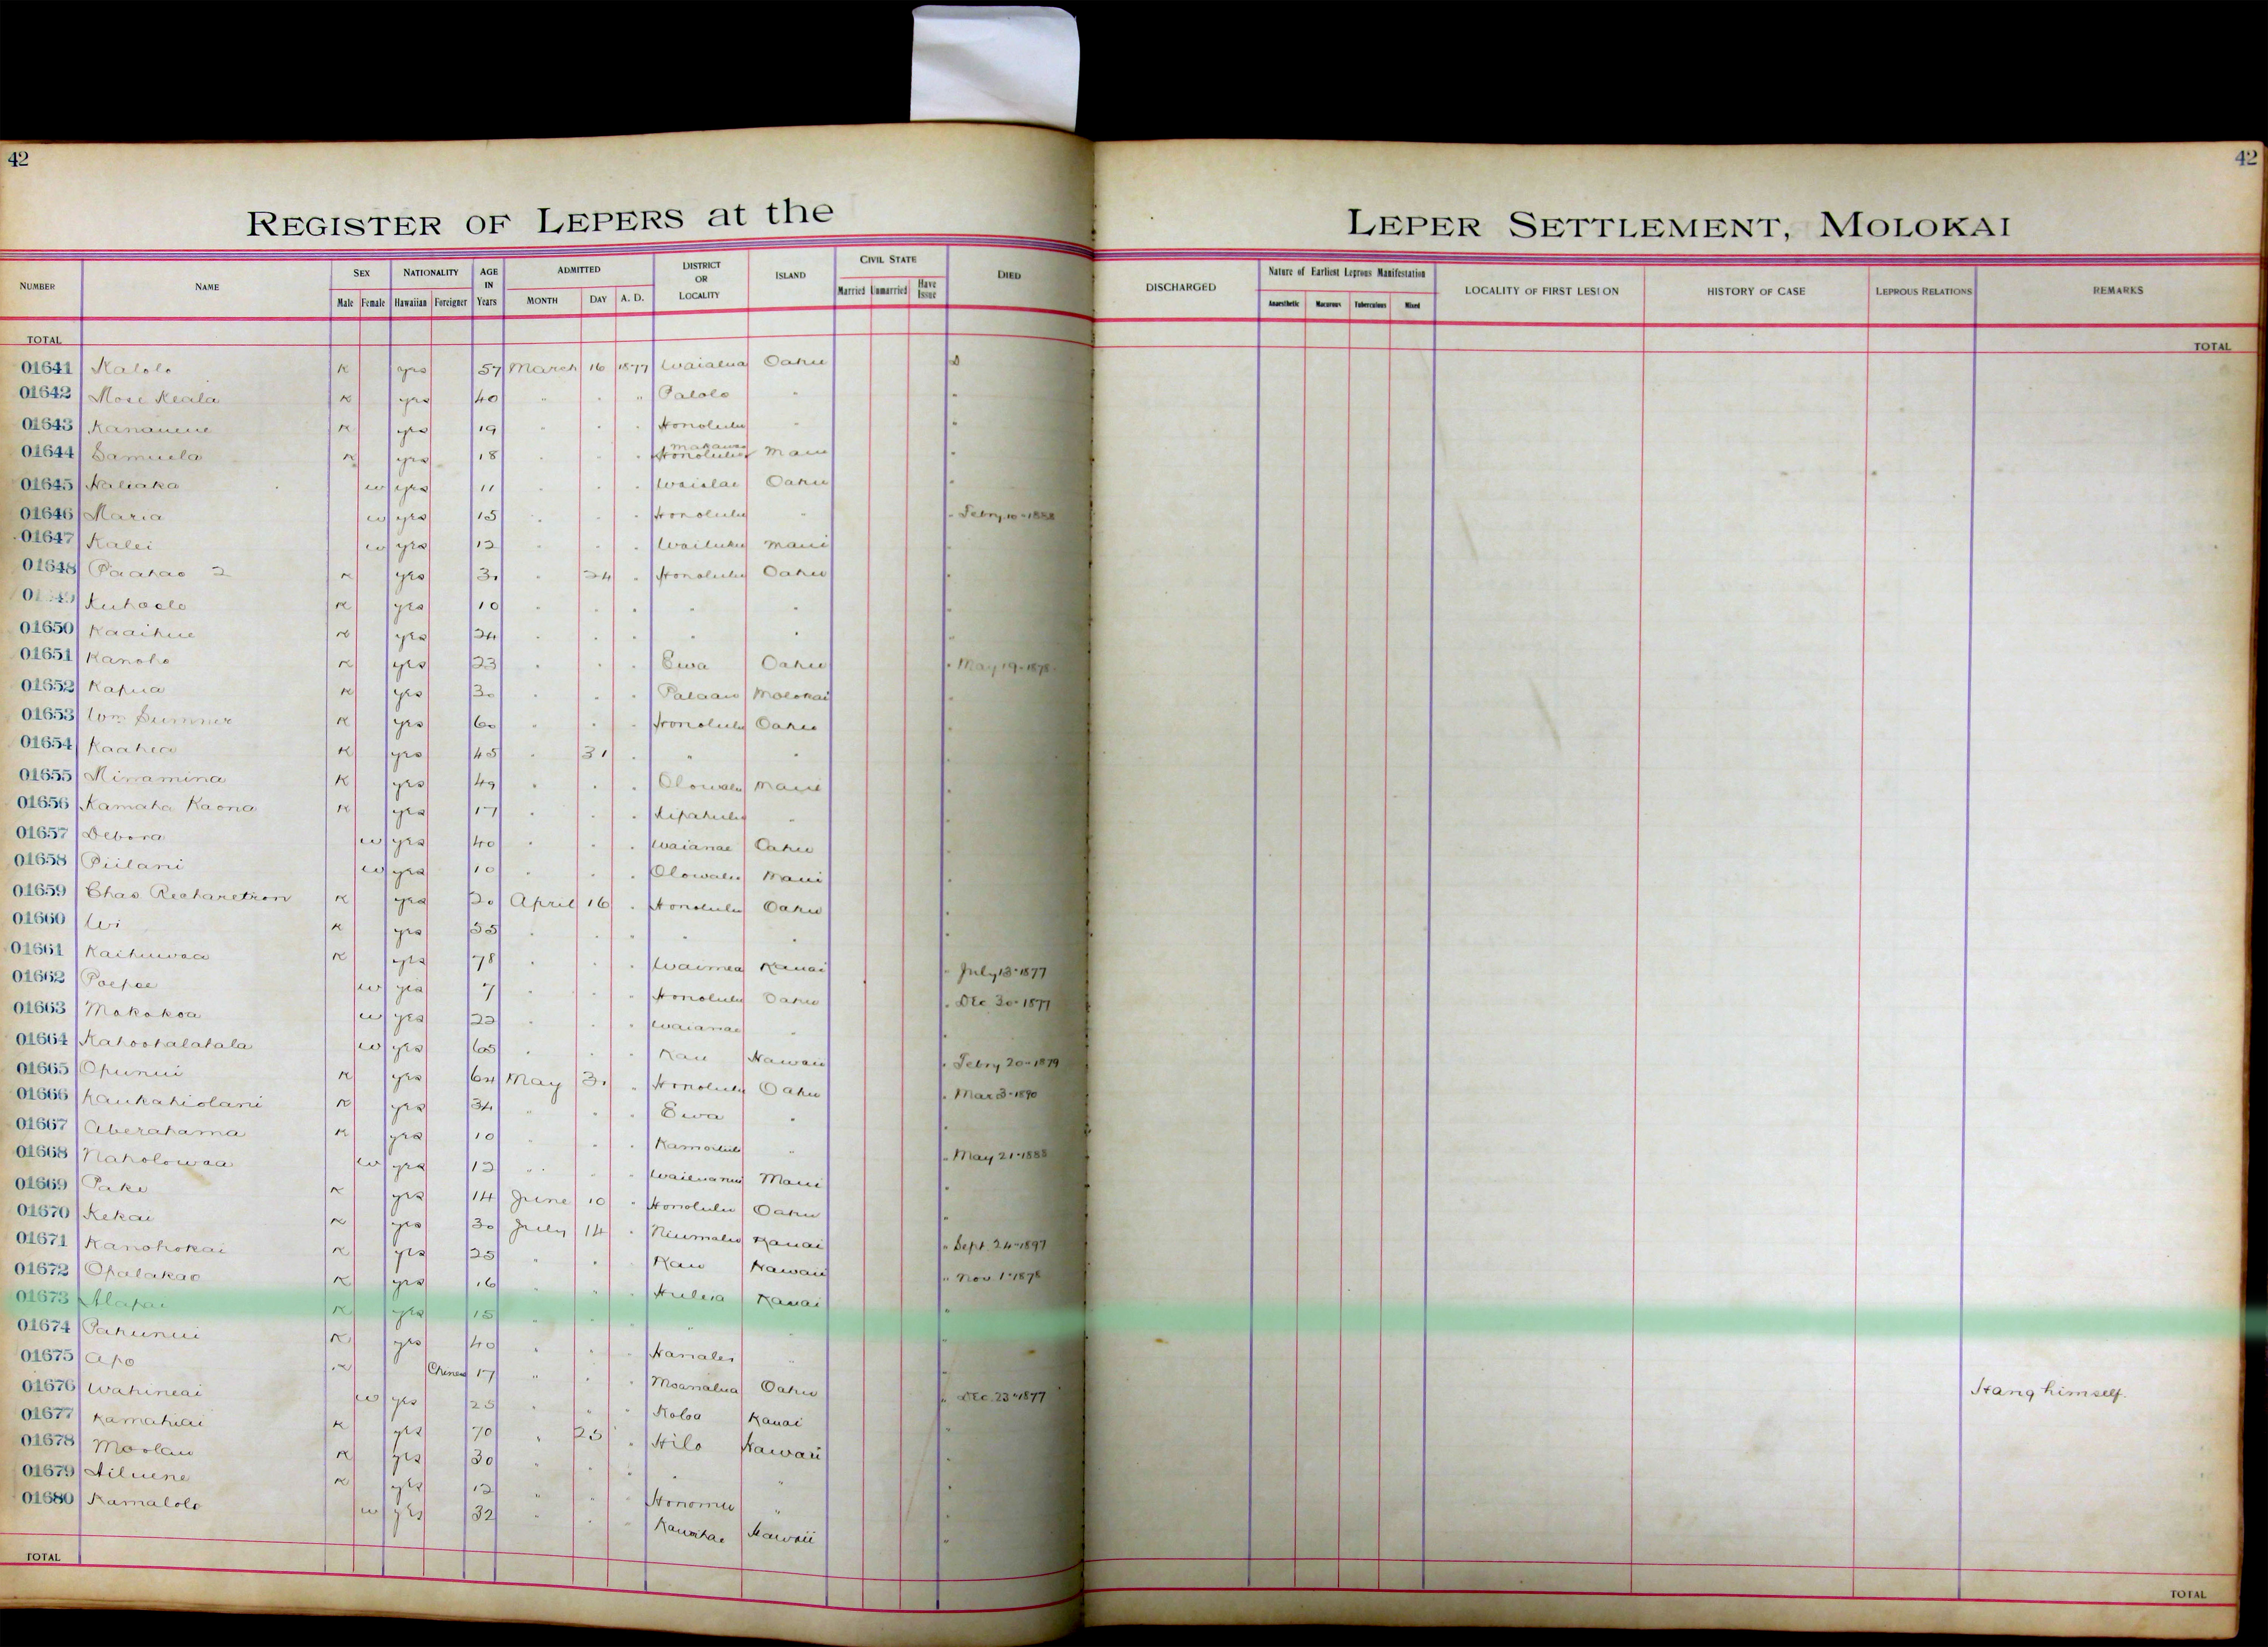 42
42
REGISTER OF LEPERS at the LEPER SETTLEMENT, MOLOKAI
NUMBER NAME SEX Male Female NATIONALITY Hawaiian Foreigner AGE IN Years ADMITTED MONTH DAY A. D. DISTRICT OR LOCALITY ISLAND CIVIL STATE Married Unmarried Have Issue DIED DISCHARGED Nature of Earliest Leprous Manifestation Anaesthetic Macurous Tuberculous Mixed LOCALITY OF FIRST LESION HISTORY OF CASE LEPROUS RELATIONS REMARKS
TOTAL TOTAL
01641 Kalolo K yes 57 March 16 1877 Waialua Oahu D
01642 Mose Keala K yes 40 " " " Palolo " "
01643 Kananene K yes 19 " " " Honolulu " "
01644 Samuela K yes 18 " " " Makawao Honolulu Maui "
01645 Naliaka w yes 11 " " " Waialae Oahu "
01646 Maria w yes 15 " " " Honolulu " " Febry 10-1888
01647 Kalei w yes 12 " " " Wailuku Maui "
01648 Paahao 2 K yes 30 " 24 " Honolulu Oahu "
Kuhaelo K yes 10 " " " " " "
01650 Kaaihue K yes 24 " " " " " "
01651 Kanoho K yes 23 " " " Ewa Oahu " May 19-1878
01652 Kapua K yes 30 " " " Palaau Molokai "
01653 Wm Sumner K yes 60 " " " Honolulu Oahu "
01654 Kaahea K yes 45 " 31 " " " "
01655 Minamina K yes 49 " " " Olowalu Maui "
01656 Kamaha Kaona K yes 17 " " " Kipahulu " "
01657 Debora w yes 40 " " " Waianae Oahu "
01658 Piilani w yes 10 " " " Olowalu Maui "
01659 Chas Richaretson K yes 20 April 16 " Honolulu Oahu "
01660 Wi K yes 35 " " " " " "
01661 Kaihuwaa K yes 78 " " " Waimea Kauai " July 13-1877
01662 Poepoe w yes 7 " " " Honolulu Oahu " Dec 30-1877
01663 Makakoa w yes 22 " " " Waianae " "
01664 Kahoohalahala w yes 65 " " " Kau Hawaii " Febry 20-1879
01665 Opunui K yes 64 May 31 " Honolulu Oahu " Mar 3-1890
01666 Kaukahiolani K yes 34 " " " Ewa " "
01667 Aberahama K yes 10 " " " Kamoiliili " " May 21-1888
01668 Naholowaa w yes 12 " " " Wailuanui Maui "
01669 Pake K yes 14 June 10 " Honolulu Oahu "
01670 Kekai K yes 30 July 14 " Niumalu Kauai " Sept 24-1897
01671 Kanohokai K yes 25 " " " Kau Hawaii " Nov 1-1878
01672 Opalakao K yes 16 " " " Huleia Kauai "
01673 Alapai K yes 15 " " " " " "
01674 Pahunui K yes 40 " " " Hanalei " "
01675 Apo K Chinese 17 " " " Moanalua Oahu " Dec 23-1877 Hang himself.
01676 Wahineai w yes 25 " " " Koloa Kauai "
01677 Kamahiai K yes 70 " 25 " Hilo Hawaii "
01678 Moolau K yes 30 " " " " " "
01679 Ailuene K yes 12 " " " Honomu " "
01680 Kamalolo w yes 32 " " " Kawaihae Hawaii "
TOTAL TOTAL